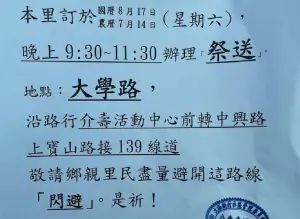 本里訂於國曆8月17日農曆7月14日(星期六),
晚上9:30~11:30辦理「祭送」
地點:大學路,
沿路行介壽活動中心前轉中興路
上寶山路接139線道
敬請鄉親里民盡量避開這路線
「閃避」。是祈!